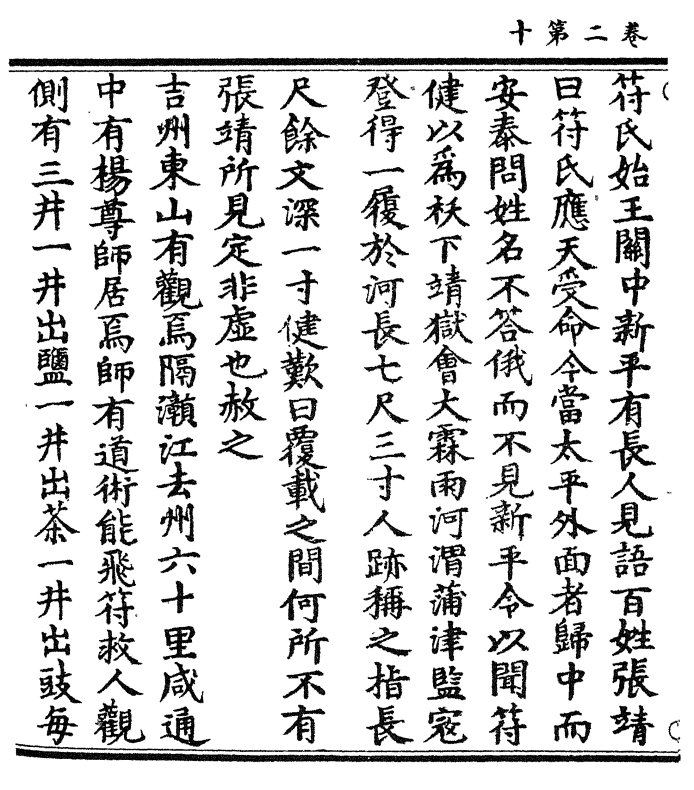 卷二第十
符氏始王關中新平有長人見語百姓張靖
曰符氏應天受命今當太平外面者歸中而
安泰問姓名不答俄而不見新平令以聞符
健以為袄下靖獄會大霖雨河渭蒲津監寇
登得一履於河長七尺三寸人跡稱之指長
尺餘文深一寸健歎曰覆載之間何所不有
張靖所見定非虛也赦之
吉州東山有觀焉隔瀨江去州六十里咸通
中有楊尊師居焉師有道術能飛符救人觀
側有三井一井出鹽一井出茶一井出豉每